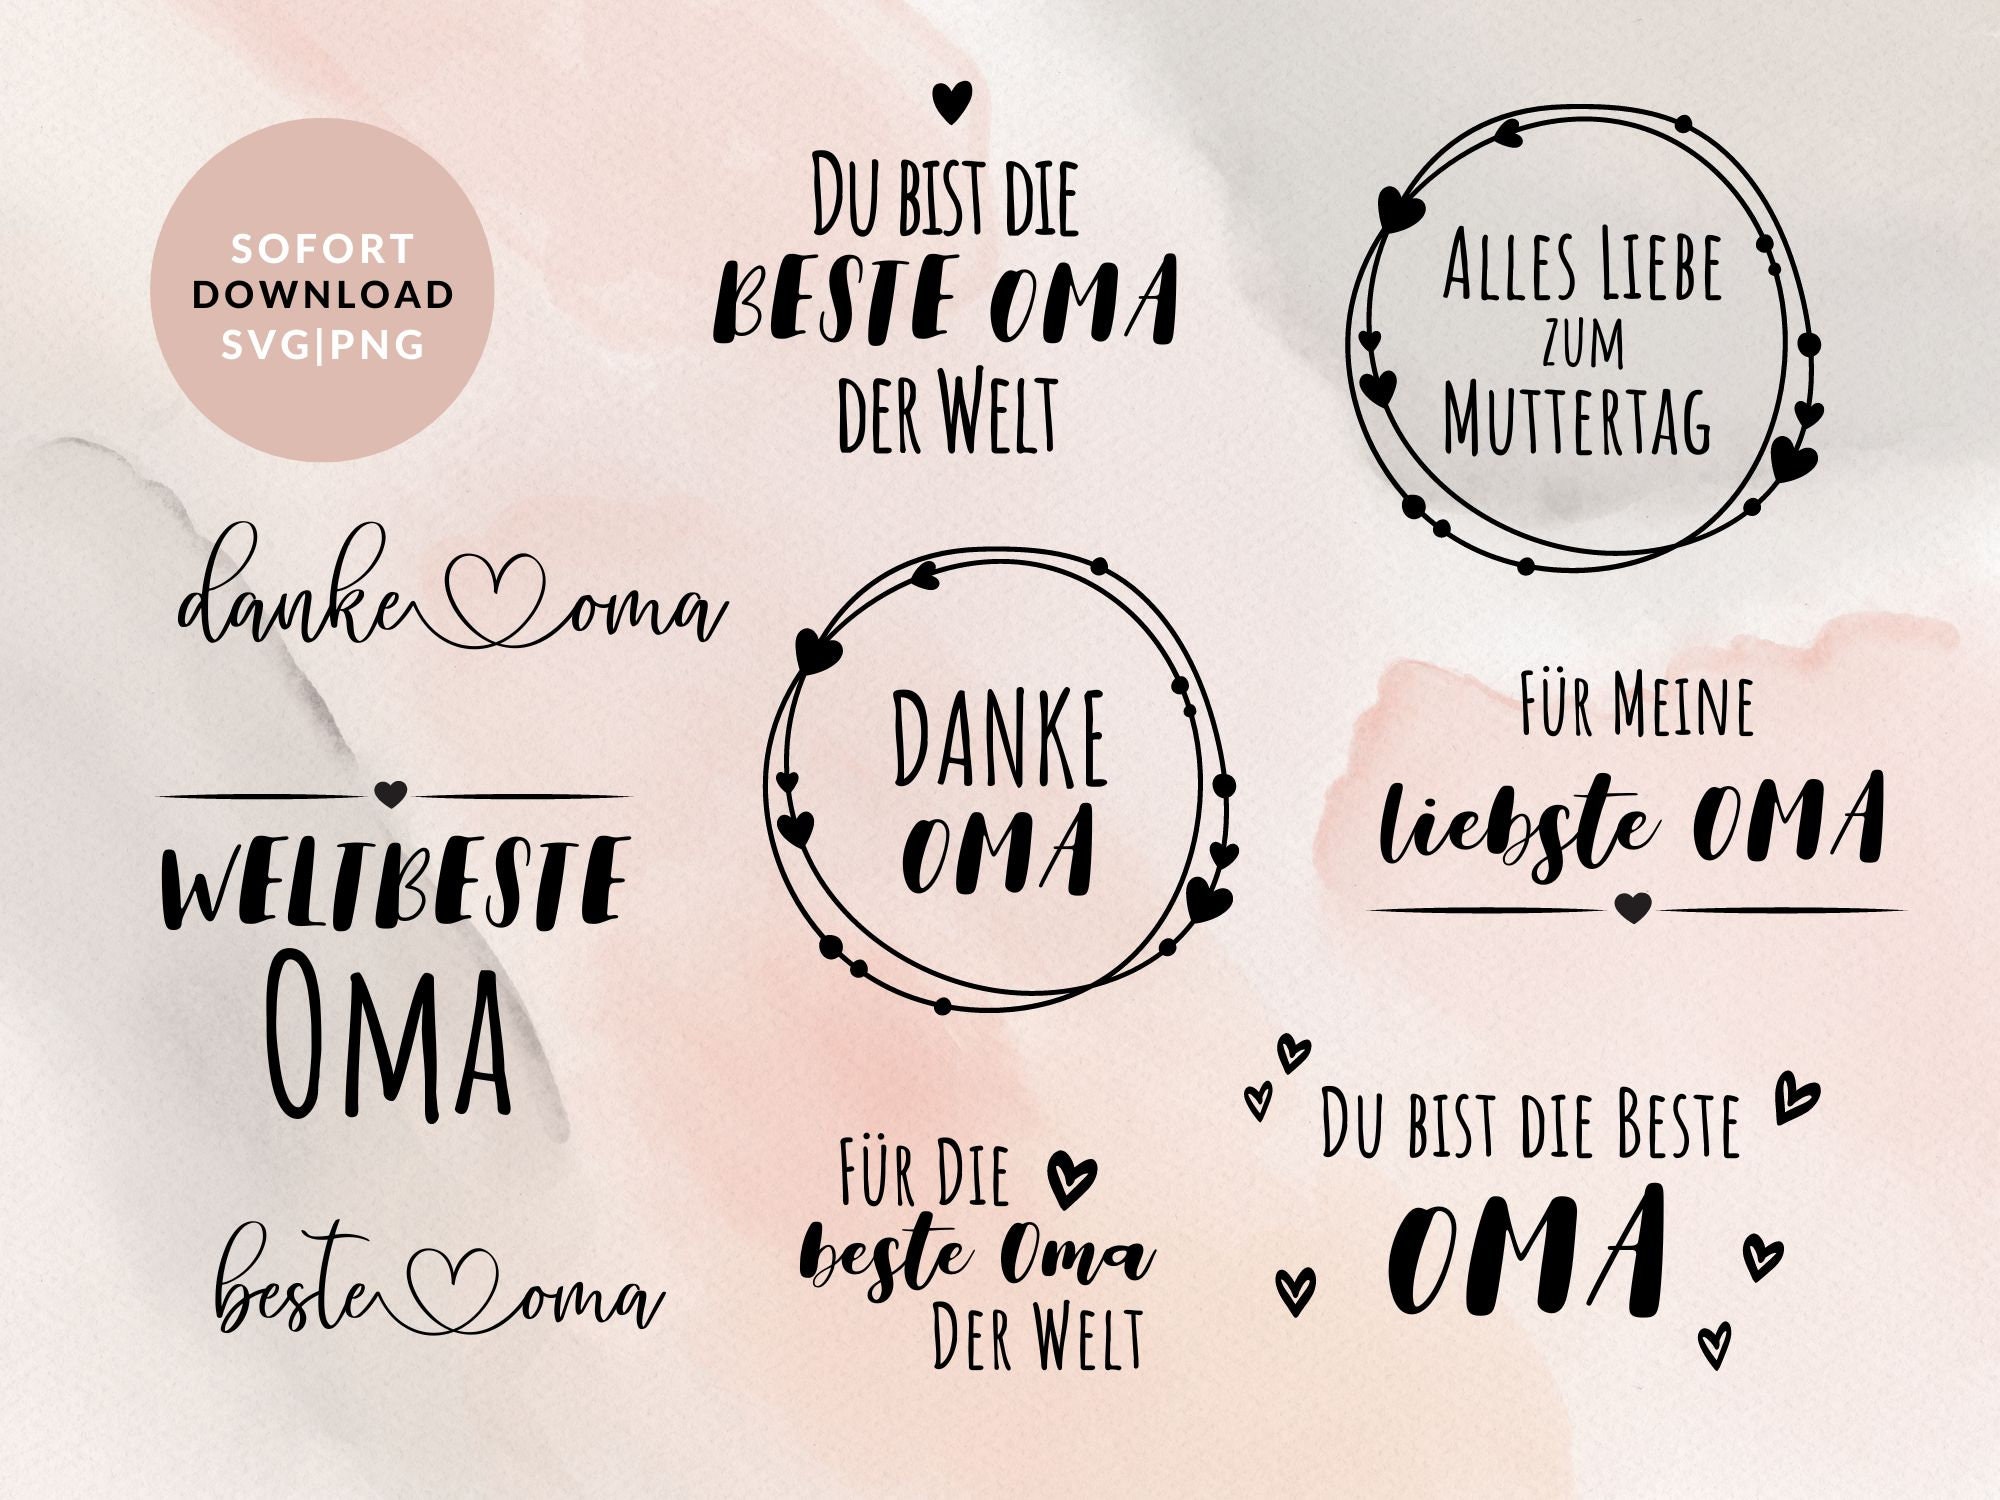 SOFORT
DOWNLOAD
SVG|PNG
DU BIST DIE
BESTE OMA
DER WELT
ALLES LIEBE
ZUM
MUTTERTAG
danke oma
DANKE
OMA
FÜR MEINE
liebste OMA
WELTBESTE
OMA
beste oma
FÜR DIE
beste Oma
DER WELT
DU BIST DIE BESTE
OMA